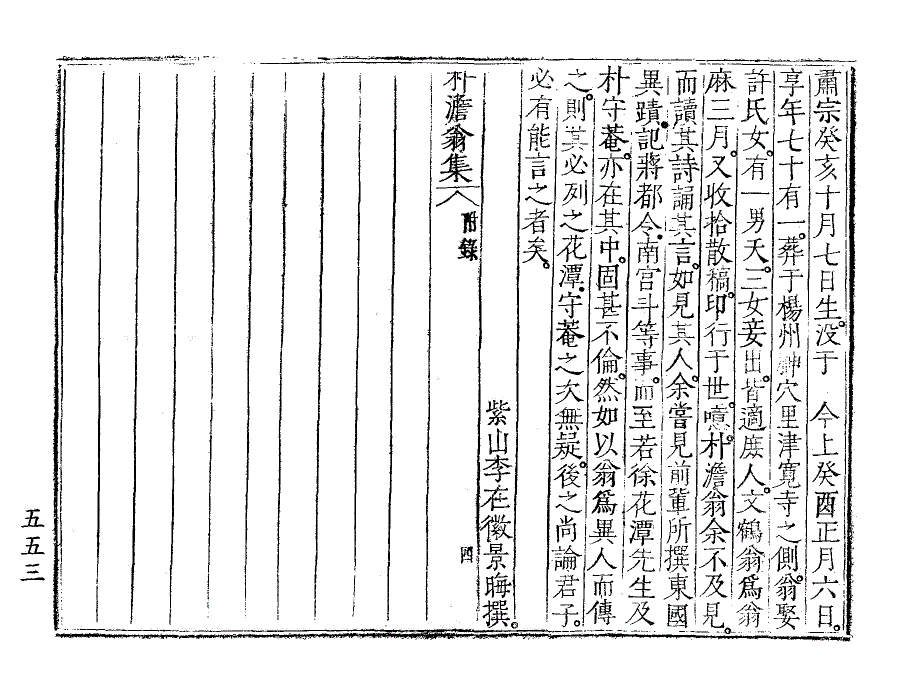 肅宗癸亥十月七日生。没于 今上癸酉正月六日。
享年七十有一。葬于楊州神穴里津寬寺之側。翁娶
許氏女。有一男夭。三女妾出。皆適庶人。文鶴翁爲翁
麻三月。又收拾散稿。印行于世。噫。朴澹翁余不及見。
而讀其詩誦其言。如見其人。余嘗見前輩所撰東國
異蹟。記蔣都令,南宮斗等事。而至若徐花潭先生及
朴守菴。亦在其中。固甚不倫。然如以翁爲異人而傳
之。則其必列之花潭,守菴之次無疑。後之尚論君子。
必有能言之者矣。
紫山李在徽景晦撰。
朴澹翁集 附錄 四
五五三